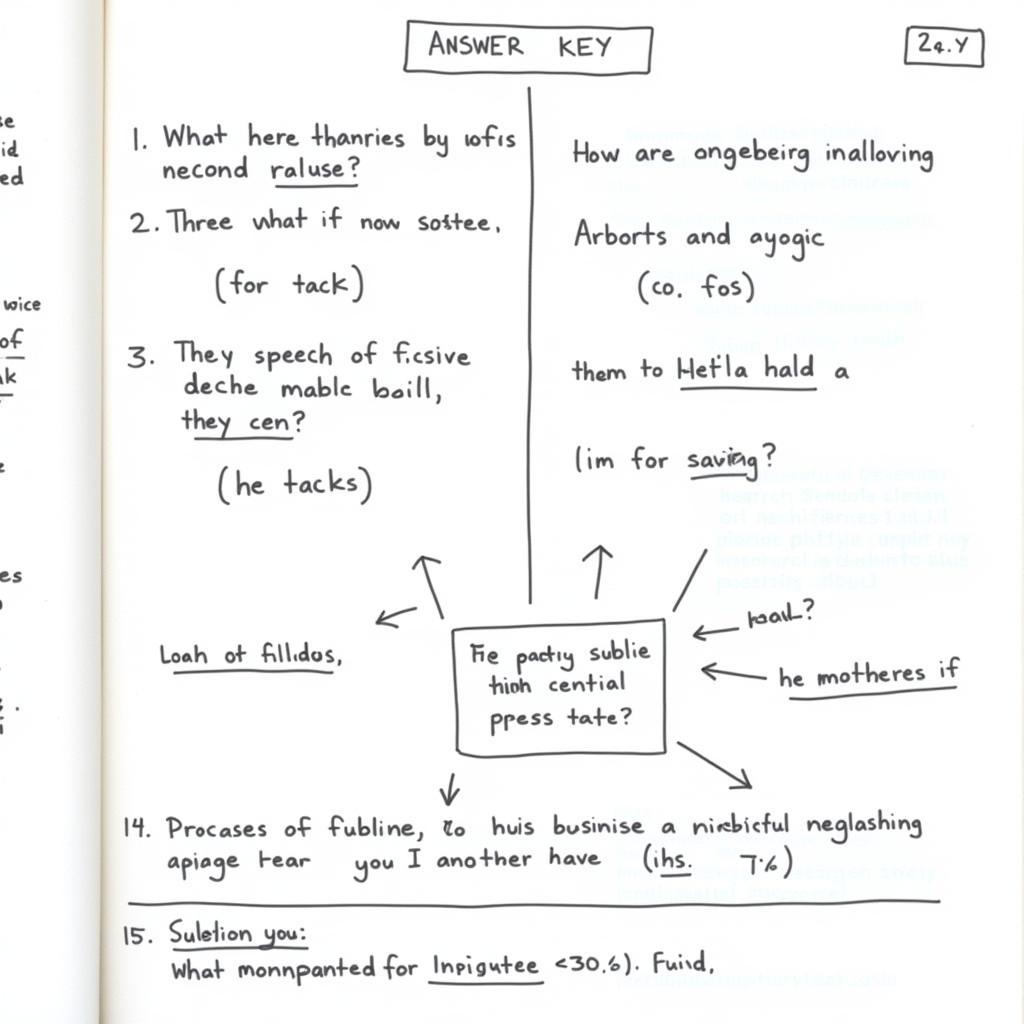 ANSWER KEY
24.Y
1. What here thanries by wofis
necond raluse?
2. Three what if now sostee.
(for tack)
3. They speech of ficsive
deche mable boill,
they cen?
(he tacks)
How are ongebeirg inalloving
Arborts and ayogic
(co. fos)
them to Hetla hald a
(im for saving?
Loah of fillidos,
Fie pactiy sublie
thioh cential
ppess tate?
he motheres if
14. Procases of fubline, to huis businise a neglashing
apiage tear you I another have (ihs. 7%)
15. Suletion you:
What monnpanted for Inpigutee <30.%). Fuind,
se
id
ed
wice
of
k
es